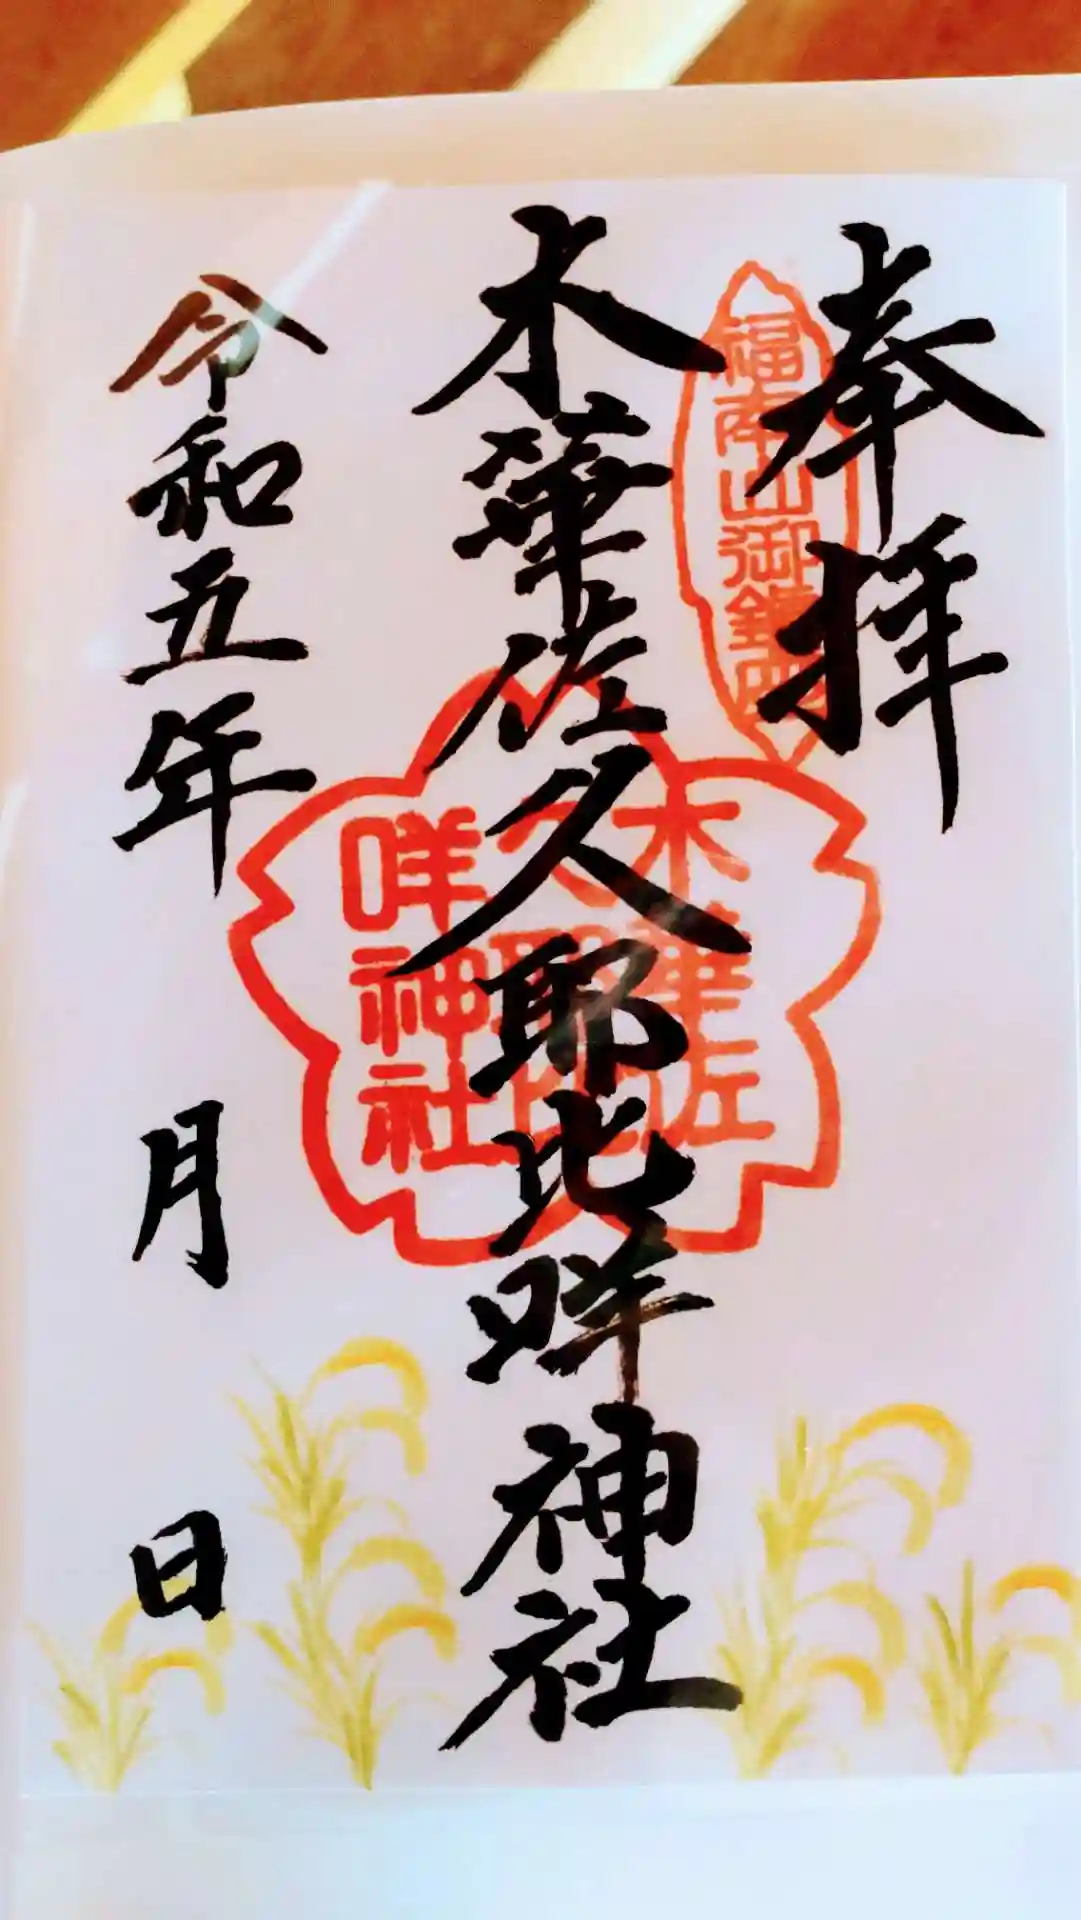 奉拝
福南山御鎮
木華佐久耶比咩神社
木華佐
久耶比
咩神社
令和五年 月 日